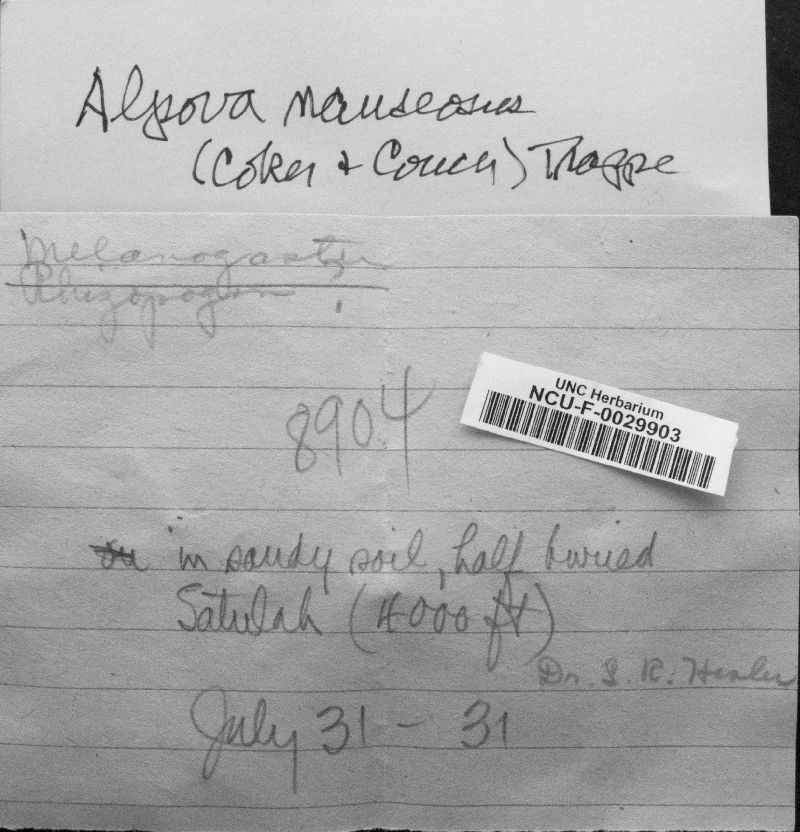 Alpova nauseosus
(Coker + Couch) Trappe
Melanogaster
Rhizopogon ?
8904
UNC Herbarium
NCU-F-0029903
on in sandy soil, half buried
Satulah (4000 ft)
Dr. L. R. Hesler
July 31 - 31